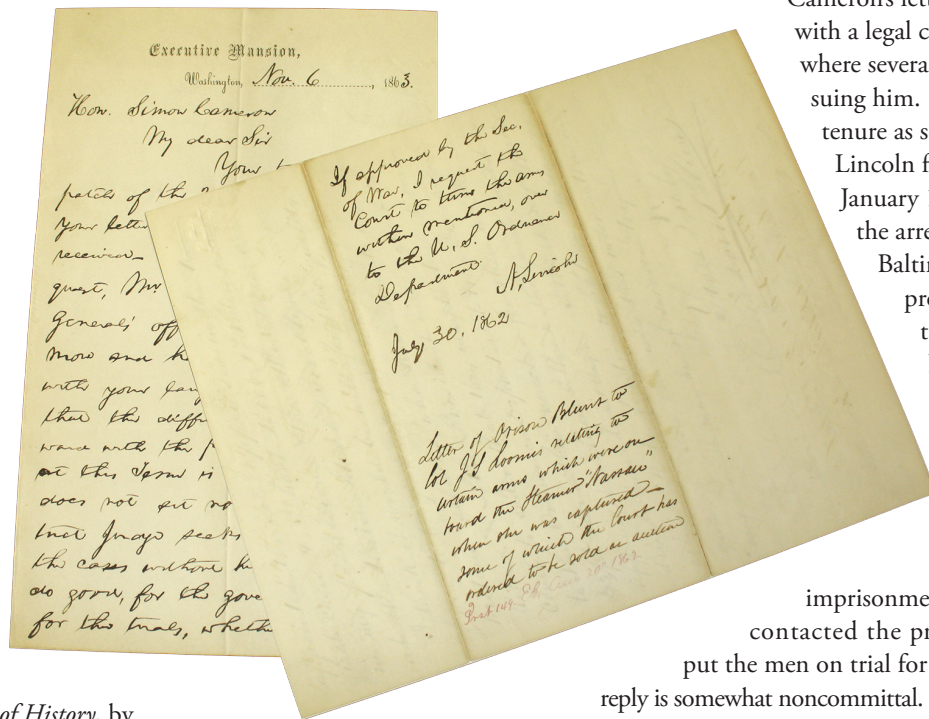 Executive Mansion,
Washington, Nov. 6, 1863.
Hon. Simon Cameron
My dear Sir
Your
patch of the
Your letter
receiver
quest, Mr
Generals' off
more and h
with your
that the diff
ward with the
at this Term is
does not sit no
trict Judge seeks
the cases without
do good, for the gove
for the trials, whethe
If approved by the Sec.
of War, I request the
Court to turn the arms
within mentioned, over
to the U. S. Ordnance
Department.
A. Lincoln
July 30, 1862
Letter of Orison Blunt to
Col J S Loomis relating to
certain arms which were on
board the Steamer "Nassau"
when she was captured—
some of which the Court has
ordered to be sold at auction
with a legal c
where severa
suing him.
tenure as s
Lincoln f
January 1
the arre
Baltin
pr
t
imprisonme
contacted the pr
put the men on trial for
reply is somewhat noncommittal.
of History, by